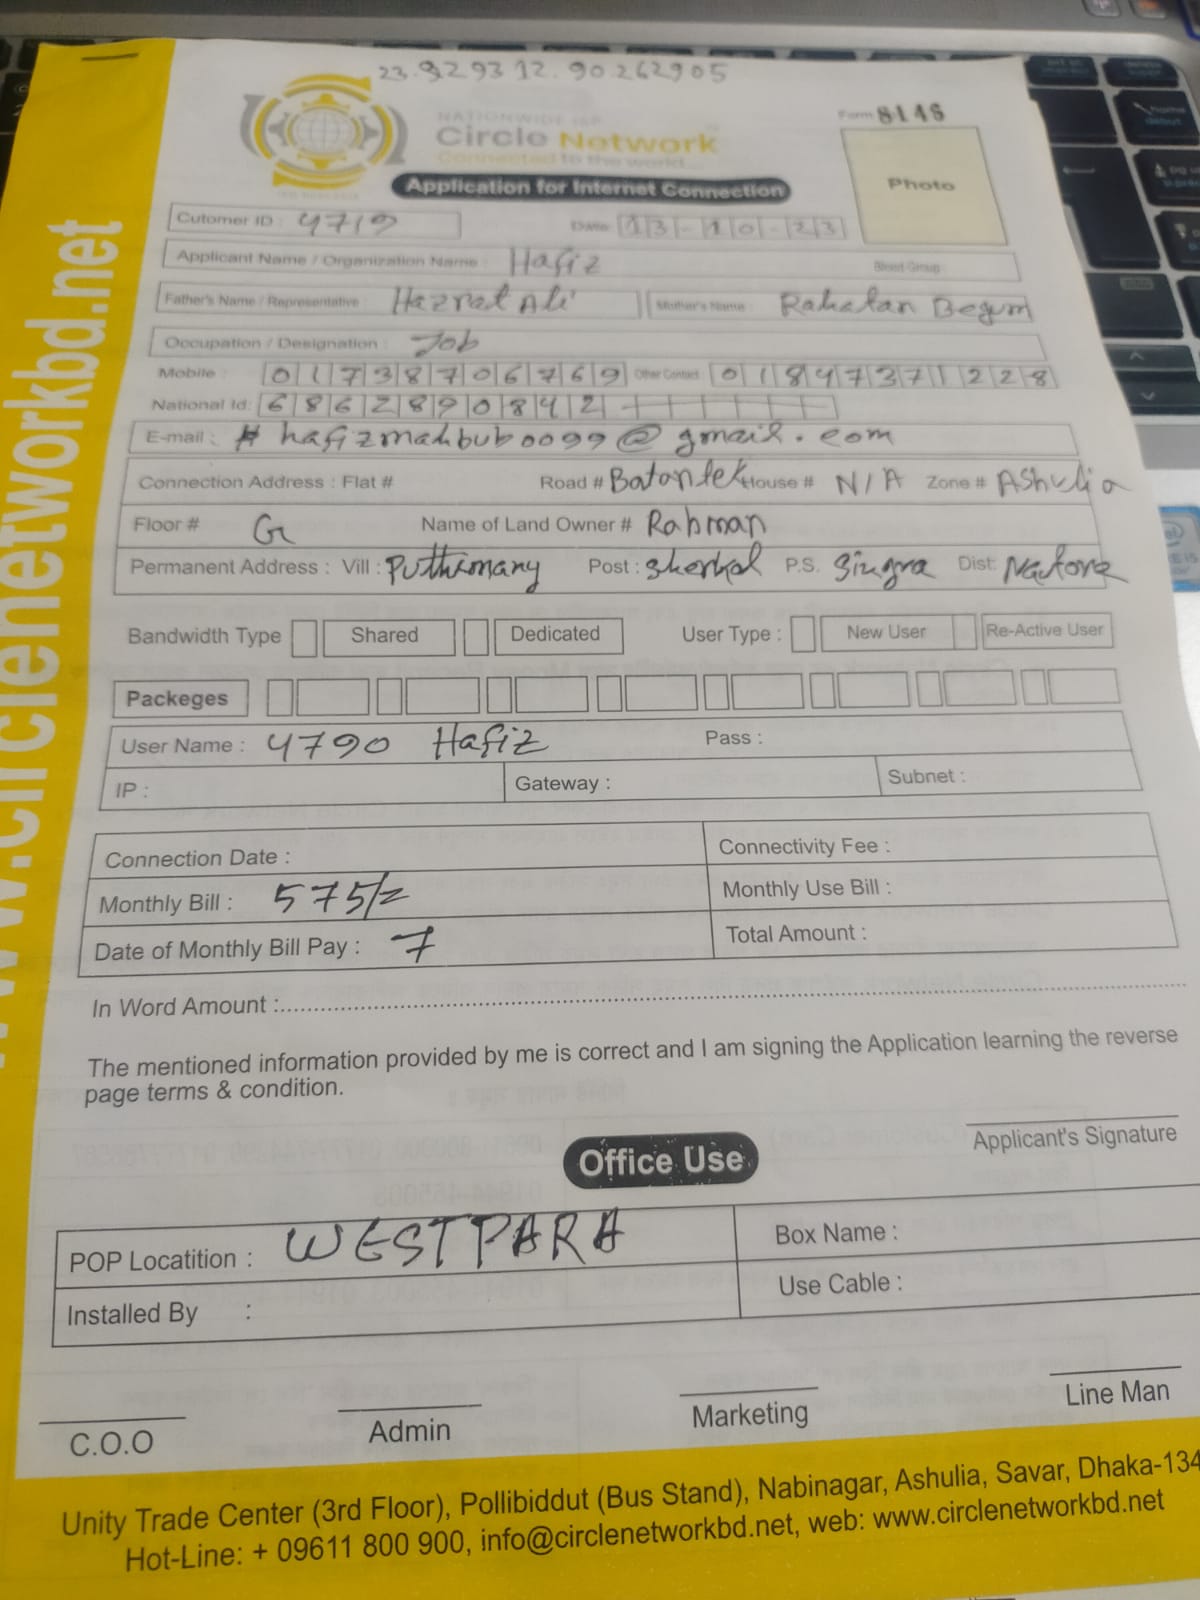 23.929312.90262905
NATIONWIDE ISP
Circle Network
Connected to the world...
Form 8148
Photo
Application for Internet Connection
Cutomer ID : 4719
Date: 13-10-23
Applicant Name / Organization Name : Hafiz Blood Group
Father's Name / Representative : Hazrat Ali Mother's Name : Rahatan Begum
Occupation / Designation : Job
Mobile : 01738706769 Other Contact 01847371228
National Id: 6862890842
E-mail : hafizmahbub0099@gmail.com
Connection Address : Flat # Road # Batantek House # N/A Zone # Ashulia
Floor # G Name of Land Owner # Rahman
Permanent Address : Vill : Puthimary Post : Sherkol P.S. Singra Dist: Natore
Bandwidth Type Shared Dedicated User Type : New User Re-Active User
Packeges
User Name : 4790 Hafiz Pass :
IP : Gateway : Subnet :
Connection Date : Connectivity Fee :
Monthly Bill : 575/= Monthly Use Bill :
Date of Monthly Bill Pay : 7 Total Amount :
In Word Amount :
The mentioned information provided by me is correct and I am signing the Application learning the reverse
page terms & condition.
Applicant's Signature
Office Use
POP Locatition : WESTPARA Box Name :
Installed By : Use Cable :
C.O.O Admin Marketing Line Man
Unity Trade Center (3rd Floor), Pollibiddut (Bus Stand), Nabinagar, Ashulia, Savar, Dhaka-134
Hot-Line: + 09611 800 900, info@circlenetworkbd.net, web: www.circlenetworkbd.net
www.circlenetworkbd.net